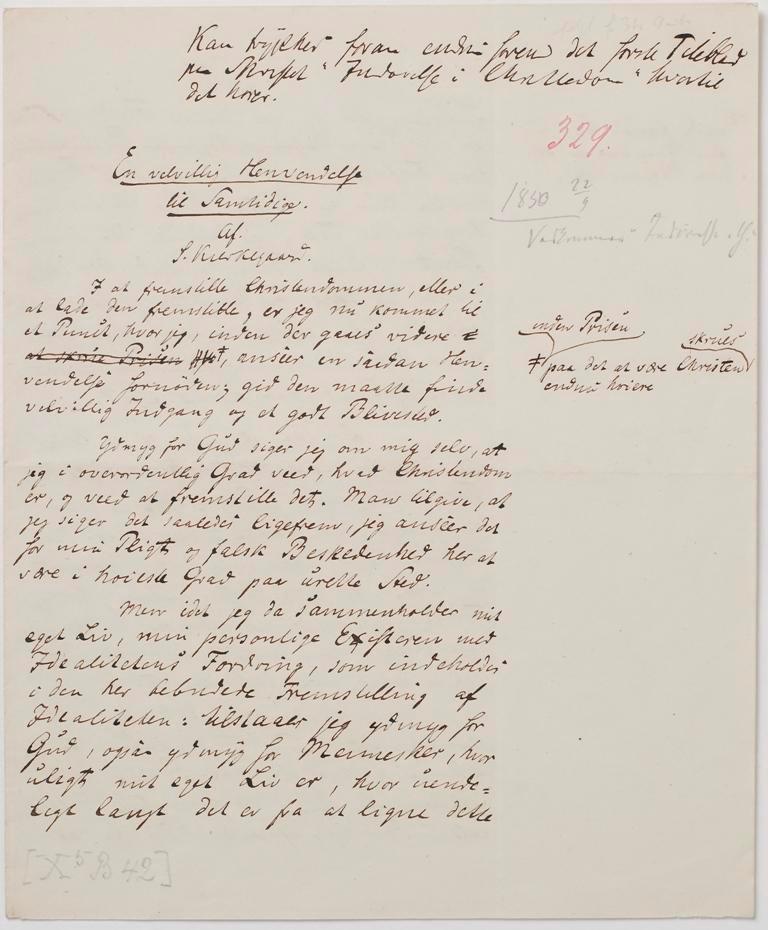 Kan trykkes foran endnu foran det første Titelblad
paa Skriftet "Indøvelse i Christendom" hvortil
det hører.
329.
En velvillig Henvendelse
til Samtidige.
Af.
S. Kierkegaard.
1850 22/9
Indøvelse
I at fremstille Christendommen, eller i
at lade den fremstille, er jeg nu kommet til
et Punkt, hvor jeg, inden der gaaes videre
at skrue Prisen ‡, anseer en saadan Hen-
vendelse fornøden; gid den maatte finde
velvillig Indgang og et godt Blivested.
inden Prisen
skrues
‡ paa det at være Christen
endnu høiere
Ydmyg for Gud siger jeg om mig selv, at
jeg i overordentlig Grad veed, hvad Christendom
er, og veed at fremstille det. Man tilgive, at
jeg siger det saaledes ligefrem, jeg anseer det
for min Pligt og falsk Beskedenhed her at
være i høieste Grad paa urette Sted.
Men idet jeg da sammenholder mit
eget Liv, min personlige Existeren med
Idealitetens Fordring, som indeholdes
i den her bebudede Fremstilling af
Idealiteten: tilstaaer jeg ydmyg for
Gud, ogsaa ydmyg for Mennesker, hvor
uligt mit eget Liv er, hvor uende-
ligt langt det er fra at ligne dette
[X⁵ B 42]